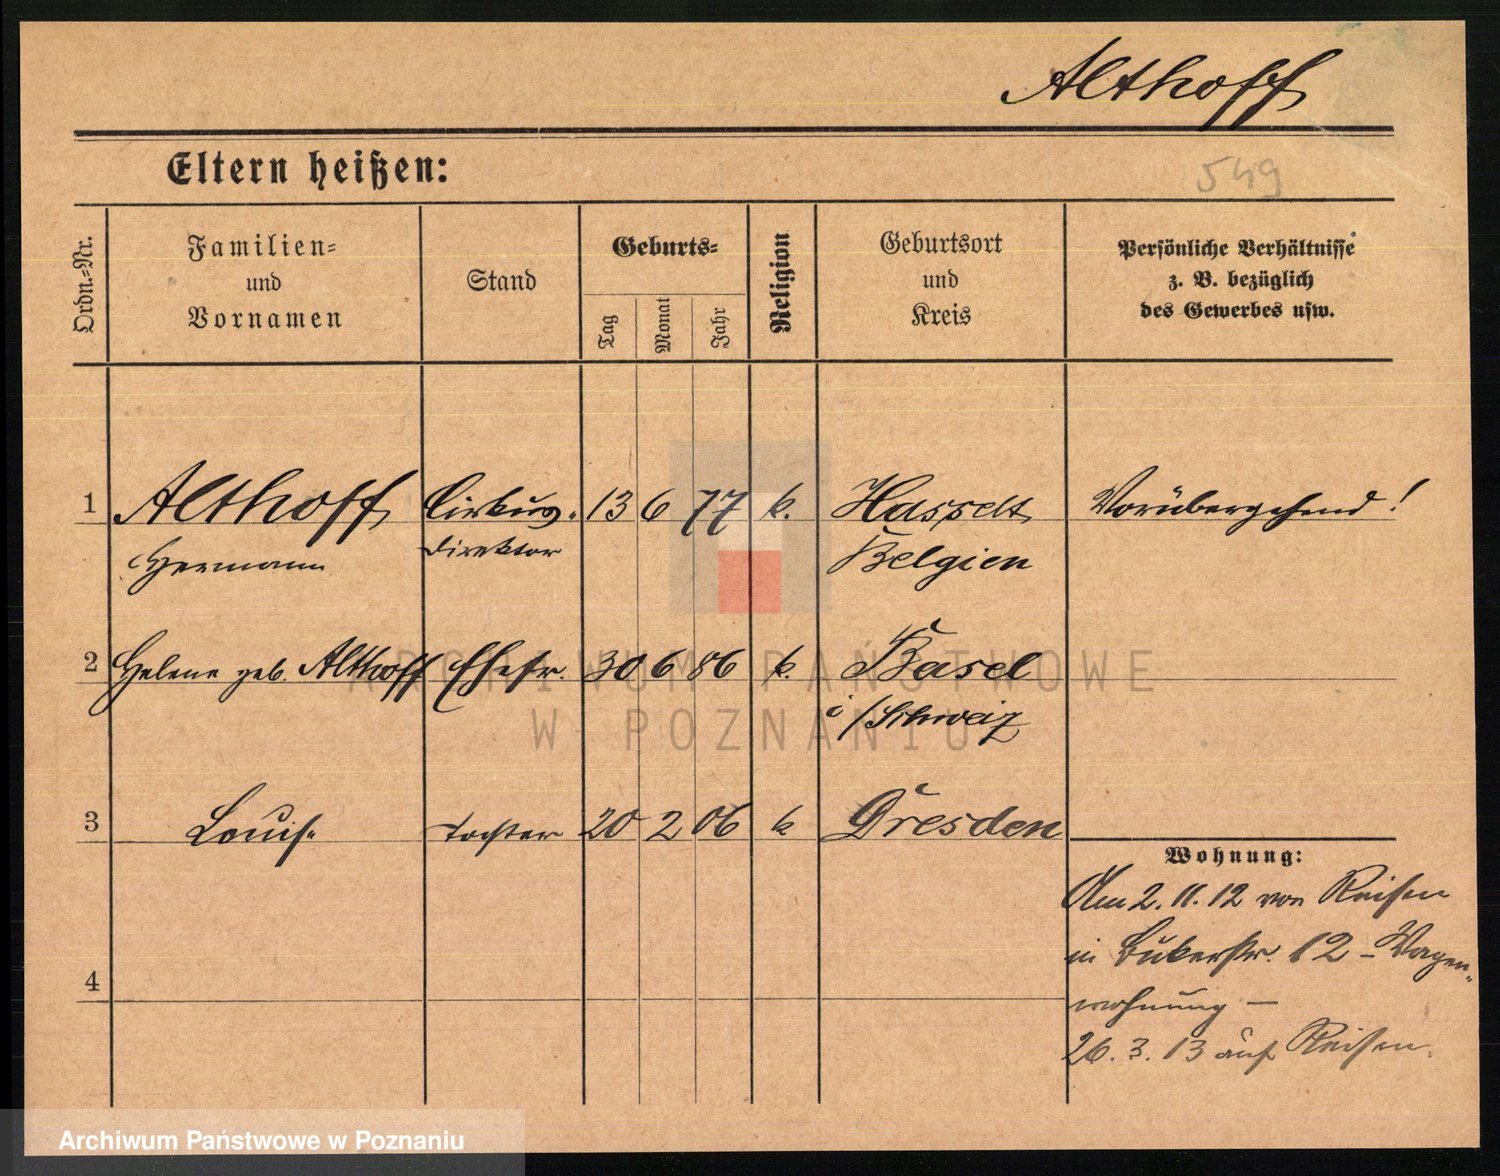 Althoff
Eltern heißen:
549
Ordn.=Nr.
Familien=
und
Vornamen
Stand
Geburts=
Tag
Monat
Jahr
Religion
Geburtsort
und
Kreis
Persönliche Verhältnisse
z. B. bezüglich
des Gewerbes usw.
1 Althoff Cirkus- 13 6 77 k. Hasselt Vorübergehend!
Hermann Direktor Belgien
2 Helene geb. Althoff Ehefr. 30 6 86 k. Basel
i/Schweiz
3 Louise Tochter 20 2 06 k Dresden
Wohnung:
Am 2.11.12 von Reisen
in Bukerstr. 12 - Wagen-
4
wohnung -
26.3.13 auf Reisen.
ARCHIWUM PAŃSTWOWE
W POZNANIU
Archiwum Państwowe w Poznaniu